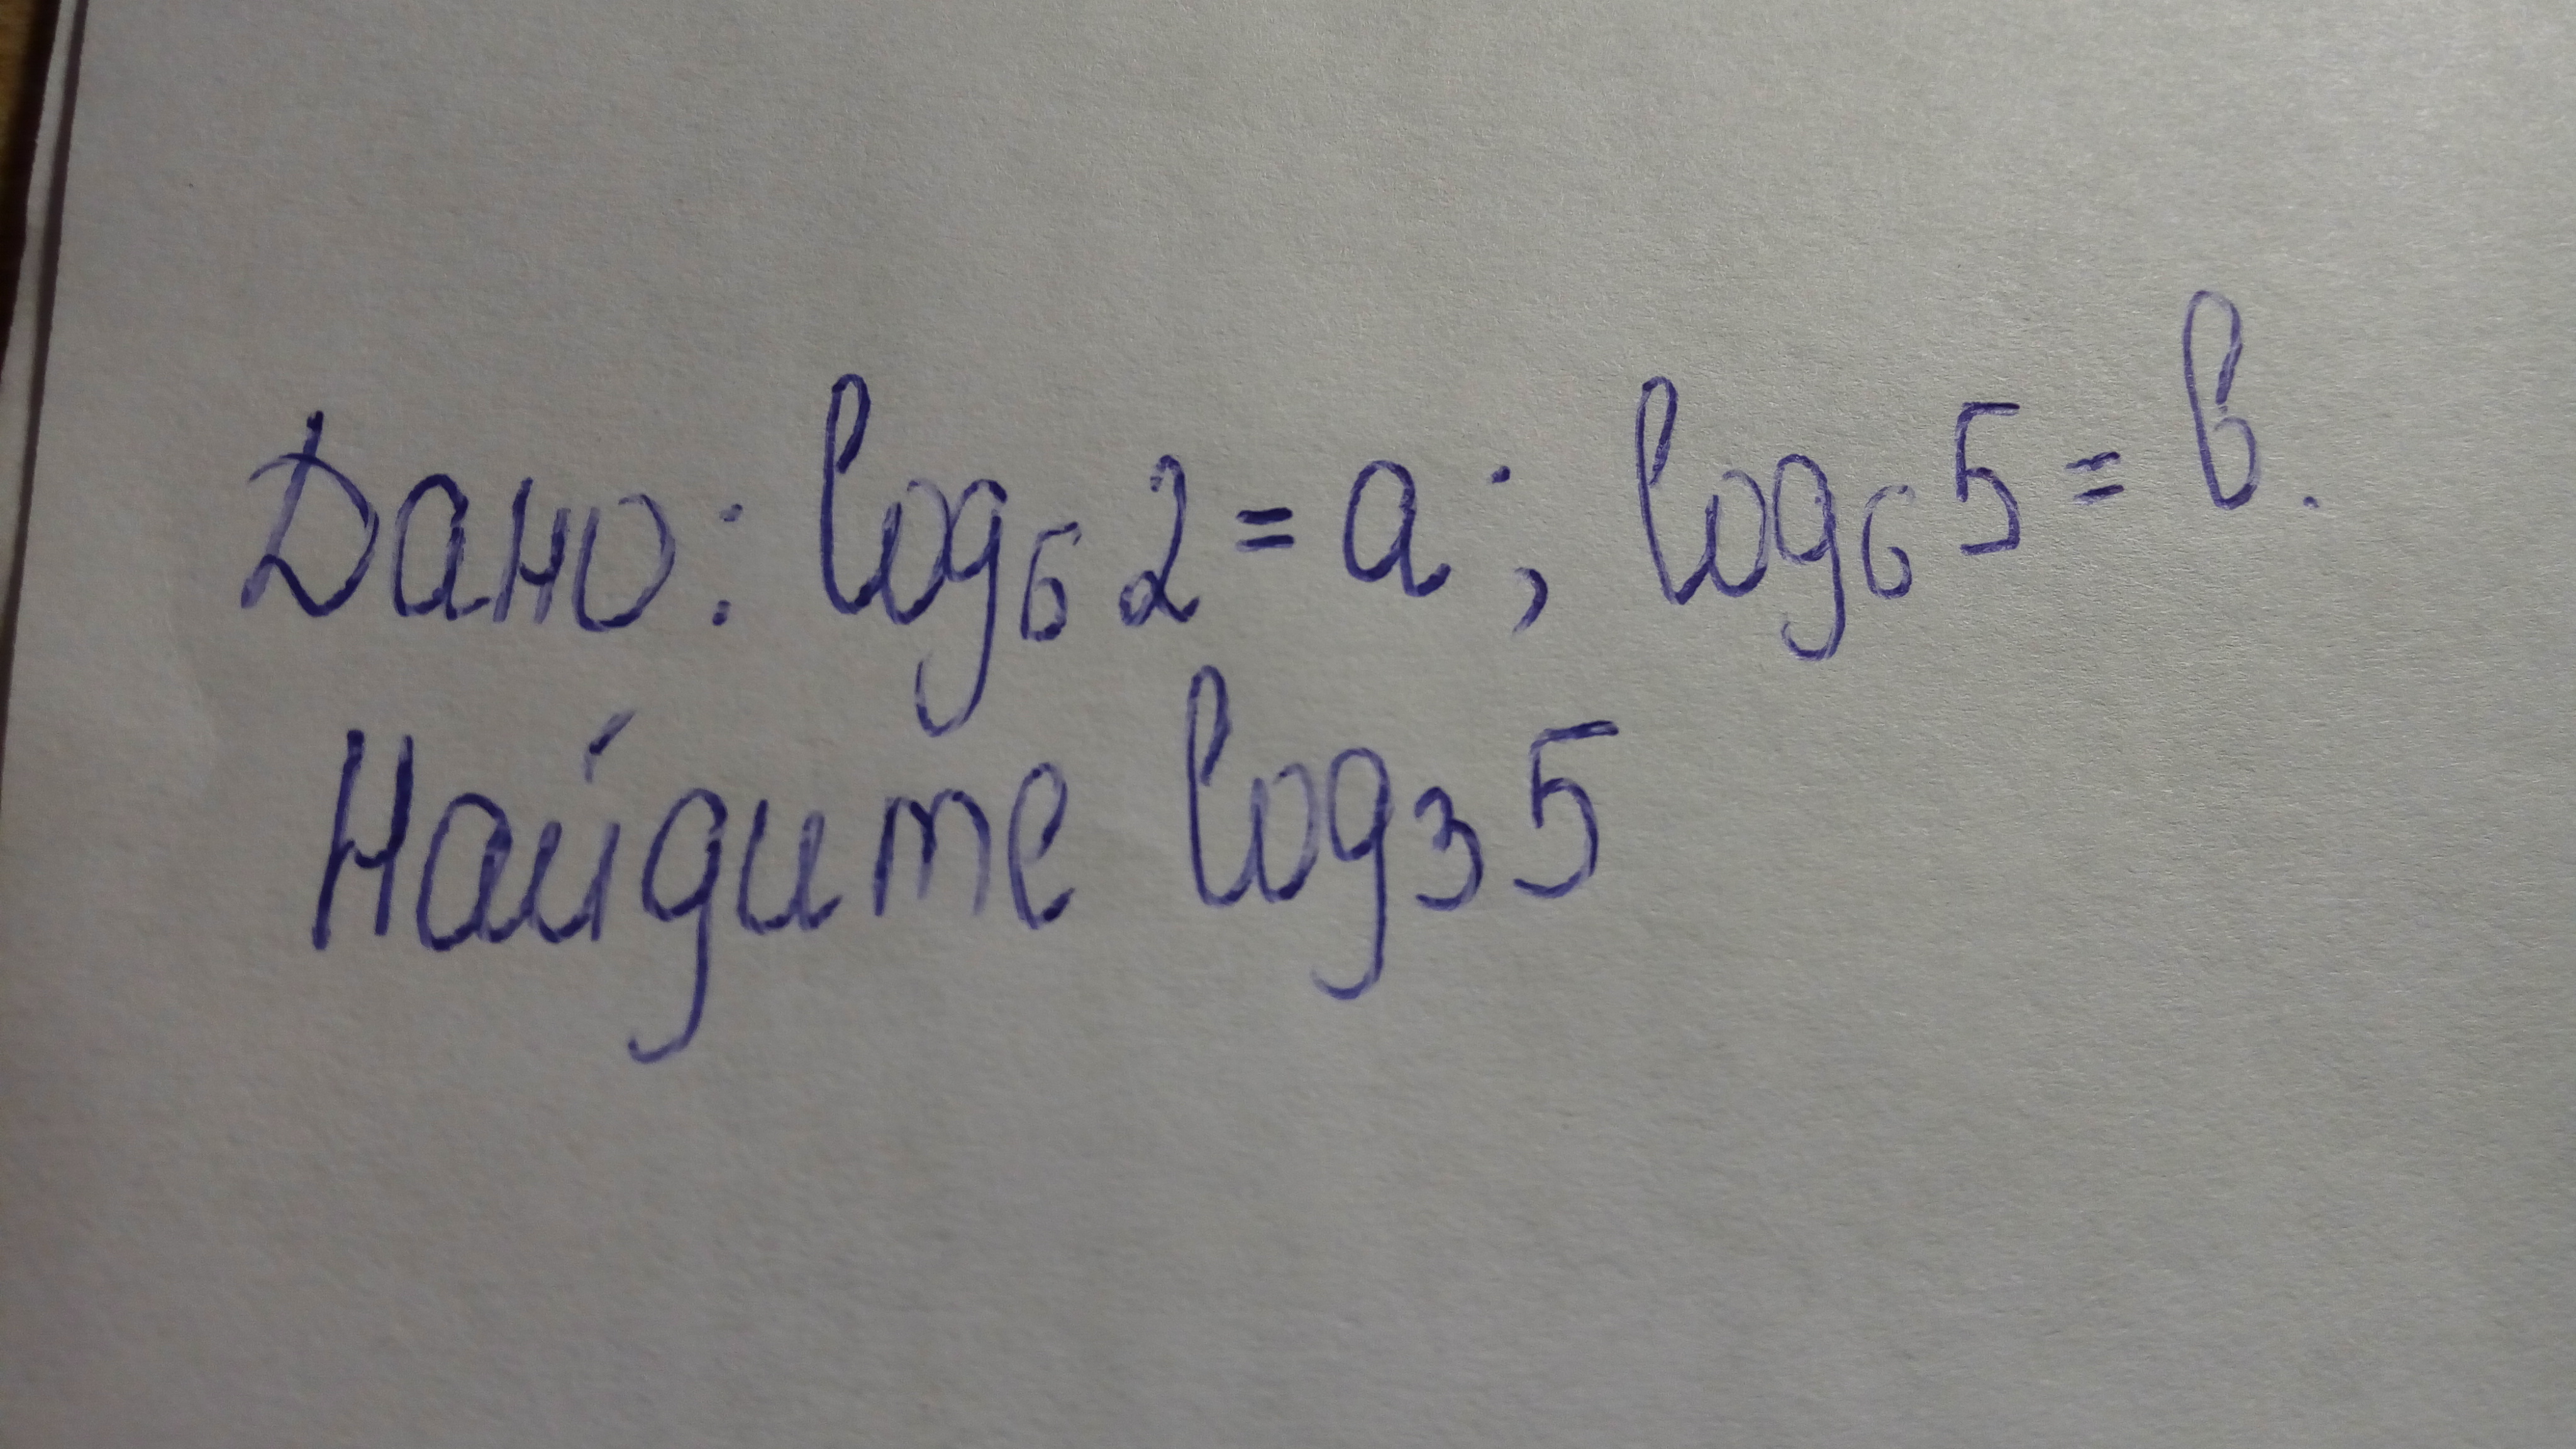 Дано: log₆ 2 = a; log₆ 5 = b.
Найдите log₃ 5